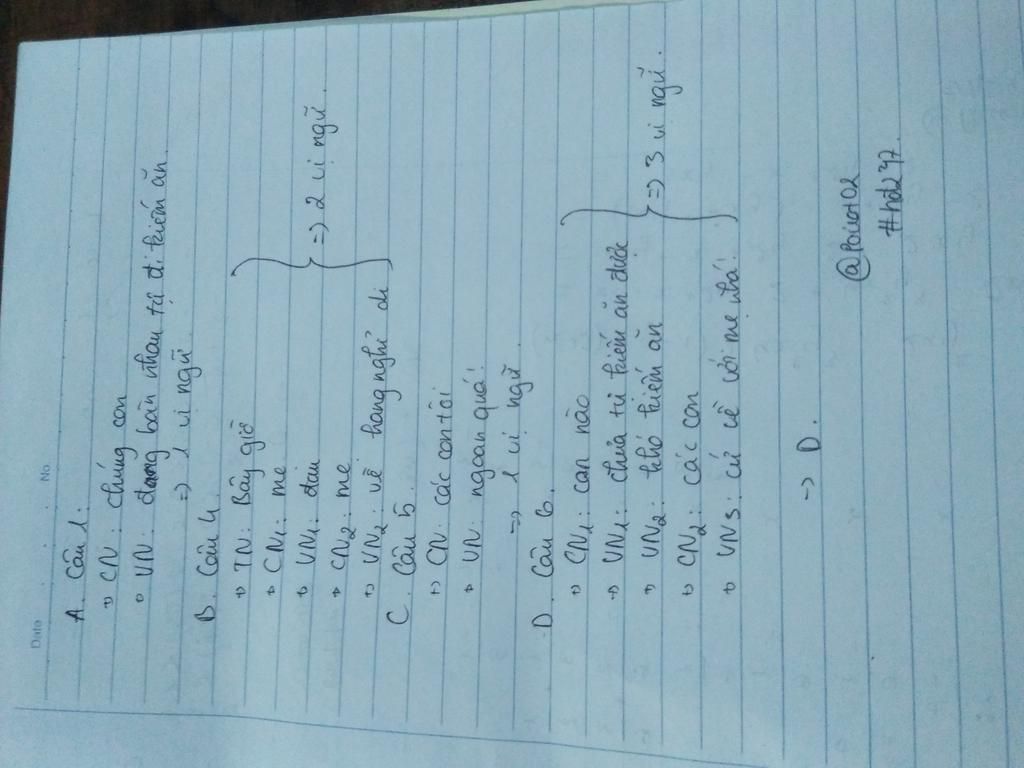 Date : : No
A. Câu 1:
CN: chúng con
VN: đang bàn nhau tự đi kiếm ăn.
=> 1 vị ngữ
B. Câu 4.
TN: Bây giờ
CN1: mẹ
VN1: đau
CN2: mẹ
VN2: về hang nghỉ đi
=> 2 vị ngữ.
C. Câu 5
CN: các con tôi
VN: ngoan quá!
=> 1 vị ngữ.
D. Câu 6.
CN1: con nào
VN1: chưa tự kiếm ăn được
VN2: khó kiếm ăn
CN2: các con
VN3: cứ về với mẹ nhá!
=> 3 vị ngữ.
-> D.